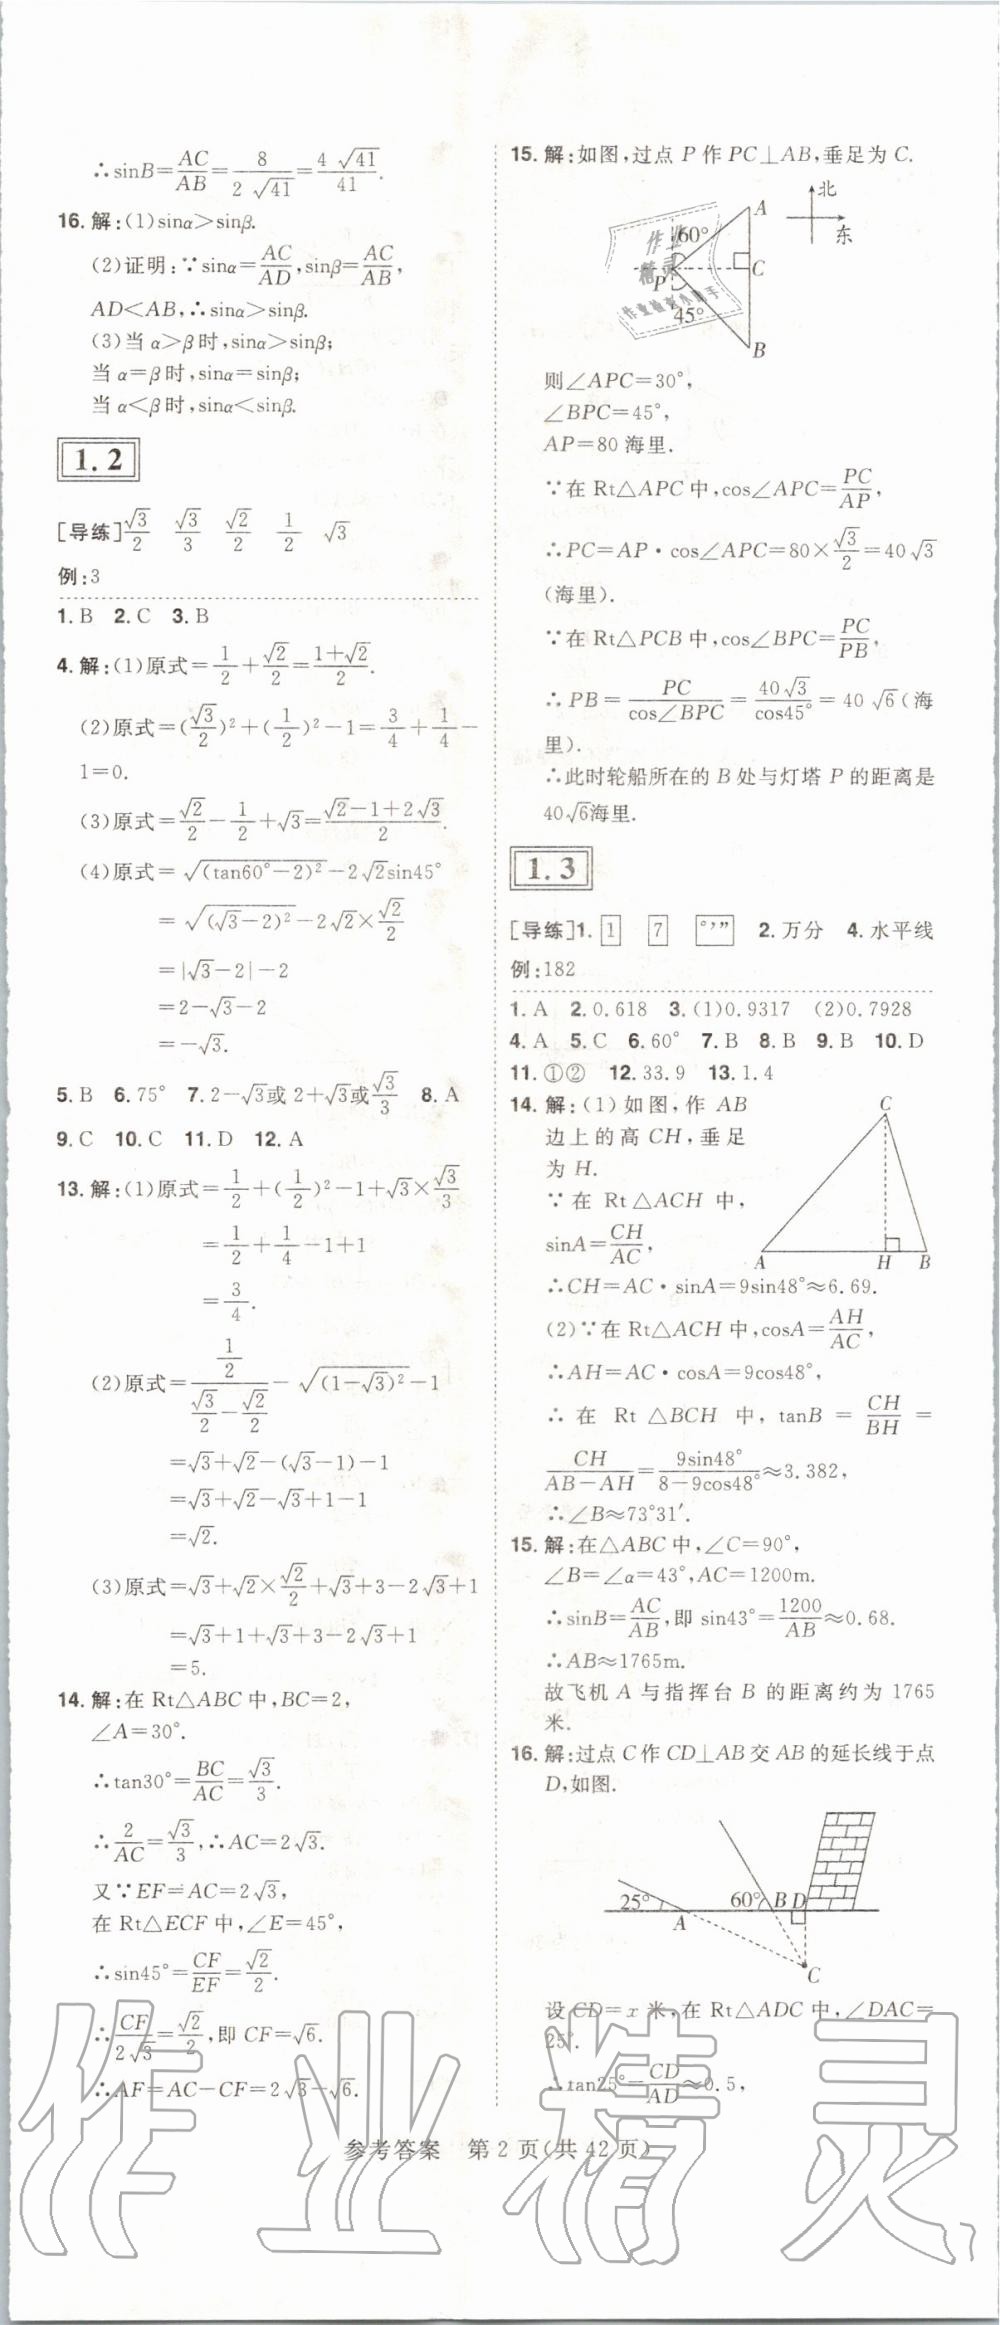 ∴sinB=AC/AB=8/(2√41)=4√41/41.
16.解:(1)sinα>sinβ.
(2)证明:∵sinα=AC/AD,sinβ=AC/AB,
AD<AB,∴sinα>sinβ.
(3)当α>β时,sinα>sinβ;
当α=β时,sinα=sinβ;
当α<β时,sinα<sinβ.
1.2
[导练]√3/2 √3/3 √2/2 1/2 √3
例:3
1.B 2.C 3.B
4.解:(1)原式=1/2+√2/2=(1+√2)/2.
(2)原式=(√3/2)²+(1/2)²-1=3/4+1/4-
1=0.
(3)原式=√2/2-1/2+√3=(√2-1+2√3)/2.
(4)原式=√((tan60°-2)²)-2√2sin45°
=√((√3-2)²)-2√2×√2/2
=|√3-2|-2
=2-√3-2
=-√3.
5.B 6.75° 7.2-√3或2+√3或√3/3 8.A
9.C 10.C 11.D 12.A
13.解:(1)原式=1/2+(1/2)²-1+√3×√3/3
=1/2+1/4-1+1
=3/4.
(2)原式=(1/2)/(√3/2-√2/2)-√((1-√3)²)-1
=√3+√2-(√3-1)-1
=√3+√2-√3+1-1
=√2.
(3)原式=√3+√2×√2/2+√3+3-2√3+1
=√3+1+√3+3-2√3+1
=5.
14.解:在Rt△ABC中,BC=2,
∠A=30°.
∴tan30°=BC/AC=√3/3.
∴2/AC=√3/3,∴AC=2√3.
又∵EF=AC=2√3,
在Rt△ECF中,∠E=45°,
∴sin45°=CF/EF=√2/2.
∴CF/(2√3)=√2/2,即CF=√6.
∴AF=AC-CF=2√3-√6.
15.解:如图,过点P作PC⊥AB,垂足为C.
A 北
东
60°
C
P
45°
B
作业
精灵
则∠APC=30°,
∠BPC=45°,
AP=80海里.
∵在Rt△APC中,cos∠APC=PC/AP,
∴PC=AP·cos∠APC=80×√3/2=40√3
(海里).
∵在Rt△PCB中,cos∠BPC=PC/PB,
∴PB=PC/cos∠BPC=40√3/cos45°=40√6(海
里).
∴此时轮船所在的B处与灯塔P的距离是
40√6海里.
1.3
[导练]1. 1 7 °′″ 2.万分 4.水平线
例:182
1.A 2.0.618 3.(1)0.9317 (2)0.7928
4.A 5.C 6.60° 7.B 8.B 9.B 10.D
11.①② 12.33.9 13.1.4
14.解:(1)如图,作AB
边上的高CH,垂足
为H.
∵在Rt△ACH中,
sinA=CH/AC,
C
A H B
∴CH=AC·sinA=9sin48°≈6.69.
(2)∵在Rt△ACH中,cosA=AH/AC,
∴AH=AC·cosA=9cos48°,
∴在Rt△BCH中,tanB=CH/BH=
CH/(AB-AH)=9sin48°/(8-9cos48°)≈3.382,
∴∠B≈73°31′.
15.解:在△ABC中,∠C=90°,
∠B=∠α=43°,AC=1200m.
∴sinB=AC/AB,即sin43°=1200/AB≈0.68.
∴AB≈1765m.
故飞机A与指挥台B的距离约为1765
米.
16.解:过点C作CD⊥AB交AB的延长线于点
D,如图.
25° 60° B D
A
C
设CD=x米,在Rt△ADC中,∠DAC=
25°.
∴tan25°=CD/AD≈0.5,
参考答案 第2页(共42页)
作业精灵